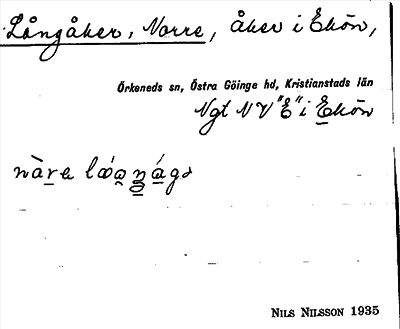 Långåker, Norre, åker i Ekön,
Örkeneds sn, Östra Göinge hd, Kristianstads län
Ngt NV "E" i Ekön
Nils Nilsson 1935